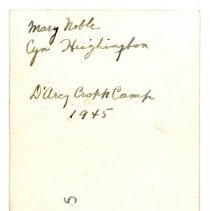 Mary Noble
Cyn Heighington
D'Arcy Cropp Camp
1945
5